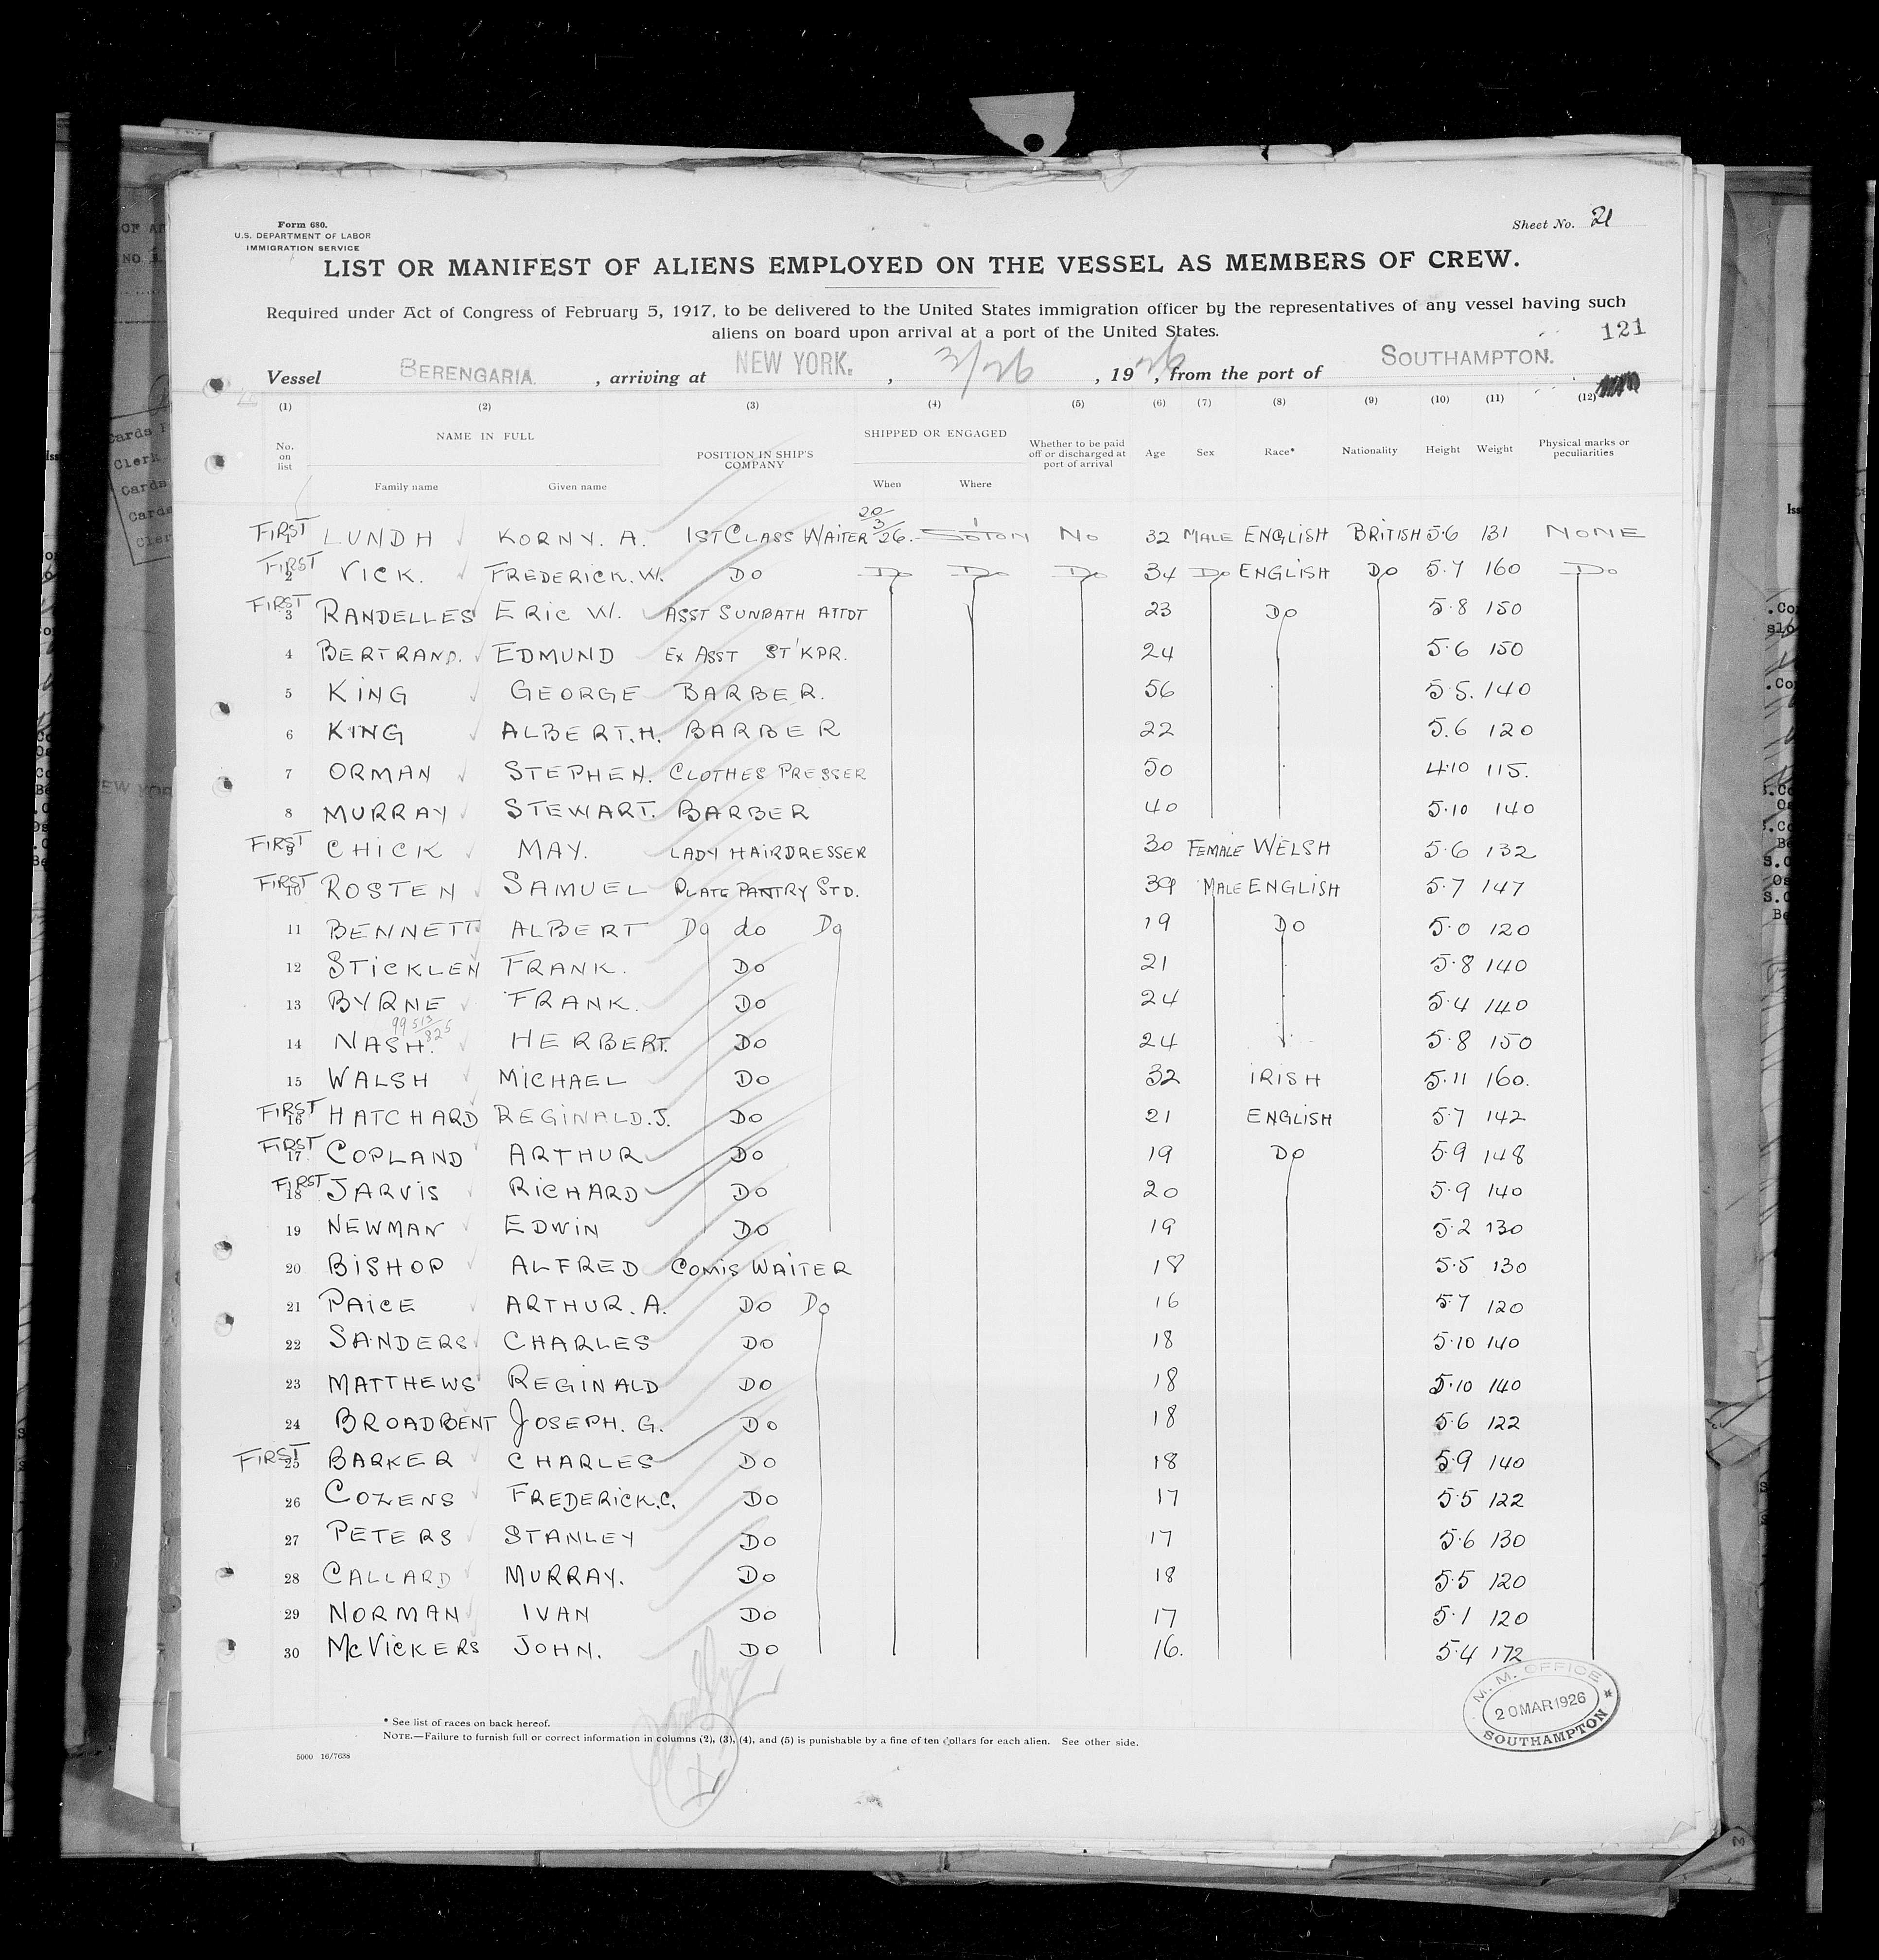 Form 680.
U.S. DEPARTMENT OF LABOR
IMMIGRATION SERVICE
Sheet No. 21
LIST OR MANIFEST OF ALIENS EMPLOYED ON THE VESSEL AS MEMBERS OF CREW.
Required under Act of Congress of February 5, 1917, to be delivered to the United States immigration officer by the representatives of any vessel having such
aliens on board upon arrival at a port of the United States.
121
Vessel BERENGARIA. , arriving at NEW YORK. , 3/26 , 1926, from the port of SOUTHAMPTON.
(1) (2) (3) (4) (5) (6) (7) (8) (9) (10) (11) (12)
No. on list NAME IN FULL Family name Given name POSITION IN SHIP'S COMPANY SHIPPED OR ENGAGED When Where Whether to be paid off or discharged at port of arrival Age Sex Race* Nationality Height Weight Physical marks or peculiarities
FIRST 1 LUNDH KORNY. A. 1ST CLASS WAITER 20/3/26. SOTON NO 32 MALE ENGLISH BRITISH 5·6 131 NONE
FIRST 2 VICK. FREDERICK. W. DO DO DO DO 34 DO ENGLISH DO 5·7 160 DO
FIRST 3 RANDELLES ERIC W. ASST SUNBATH ATTDT 23 DO 5·8 150
4 BERTRAND. EDMUND EX ASST ST'KPR. 24 5·6 150
5 KING GEORGE BARBER. 56 5·5. 140
6 KING ALBERT. H. BARBER 22 5.6 120
7 ORMAN STEPHEN. CLOTHES PRESSER 50 4·10 115.
8 MURRAY STEWART. BARBER 40 5·10 140
FIRST 9 CHICK MAY. LADY HAIRDRESSER 30 FEMALE WELSH 5·6 132
FIRST 10 ROSTEN SAMUEL PLATE PANTRY STD. 39 MALE ENGLISH 5·7 147
11 BENNETT ALBERT DO do DO 19 DO 5·0 120
12 STICKLEN FRANK. DO 21 5·8 140
13 BYRNE FRANK. DO 24 5·4 140
99513/825
14 NASH. HERBERT. DO 24 5·8 150
15 WALSH MICHAEL DO 32 IRISH 5·11 160.
FIRST 16 HATCHARD REGINALD. J. DO 21 ENGLISH 5·7 142
FIRST 17 COPLAND ARTHUR DO 19 DO 5·9 148
FIRST 18 JARVIS RICHARD DO 20 5·9 140
19 NEWMAN EDWIN DO 19 5·2 130
20 BISHOP ALFRED COMIS WAITER 18 5·5 130
21 PAICE ARTHUR. A. DO DO 16 5·7 120
22 SANDERS CHARLES DO 18 5·10 140
23 MATTHEWS REGINALD DO 18 5·10 140
24 BROADBENT JOSEPH. G. DO 18 5·6 122
FIRST 25 BARKER CHARLES DO 18 5·9 140
26 COZENS FREDERICK. C. DO 17 5·5 122
27 PETERS STANLEY DO 17 5·6 130
28 CALLARD MURRAY. DO 18 5·5 120
29 NORMAN IVAN DO 17 5·1 120
30 MCVICKERS JOHN. DO 16. 5·4 172
M. M. OFFICE
20 MAR 1926
SOUTHAMPTON
* See list of races on back hereof.
NOTE.—Failure to furnish full or correct information in columns (2), (3), (4), and (5) is punishable by a fine of ten dollars for each alien. See other side.
5000 16/7638